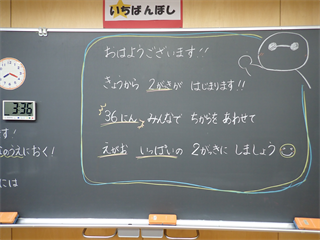 いちばんぼし
おはようございます!!
きょうから 2がっきが はじまります!!
36にん みんなで ちからを あわせて
えがお いっぱいの 2がっきに しましょう
3:36
す!
のうえにおく!
には